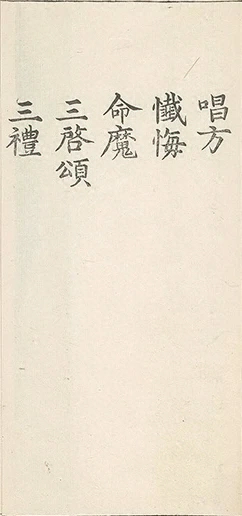 唱方
懺悔
命魔
三啓頌
三禮